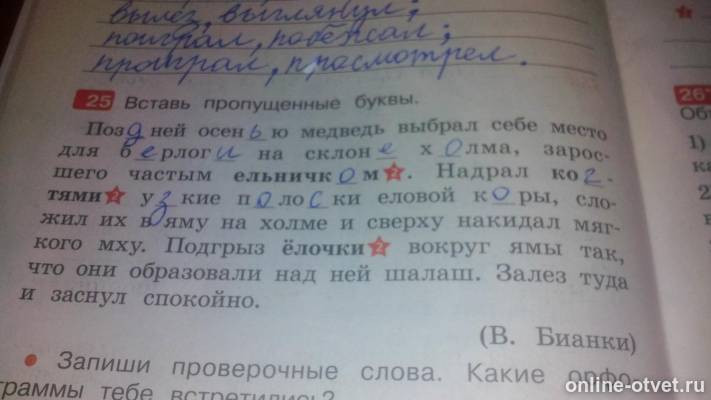 вылез, выглянул;
поиграл, побежал;
проиграл, просмотрел.
25 Вставь пропущенные буквы.
26
Поздней осенью медведь выбрал себе место
для берлоги на склоне холма, зарос-
шего частым ельничком2. Надрал ког-
тями2 узкие полоски еловой коры, сло-
жил их в яму на холме и сверху накидал мяг-
кого мху. Подгрыз ёлочки2 вокруг ямы так,
что они образовали над ней шалаш. Залез туда
и заснул спокойно.
(В. Бианки)
• Запиши проверочные слова. Какие орфо-
граммы тебе встретились?
Об
1)
ка
2.
online-otvet.ru